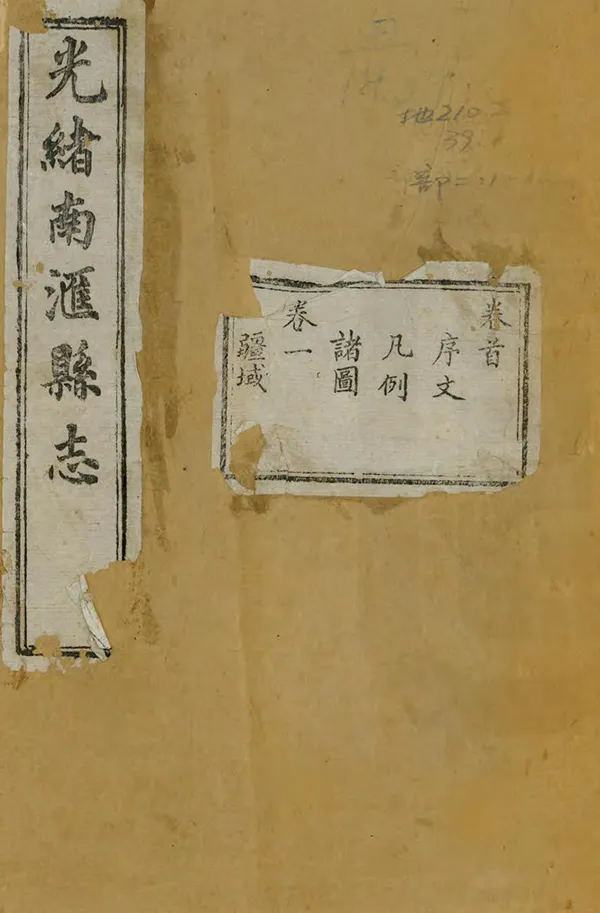 光緒南滙縣志
卷首
序文
凡例
諸圖
卷一
疆域
地210.2
39.
部二